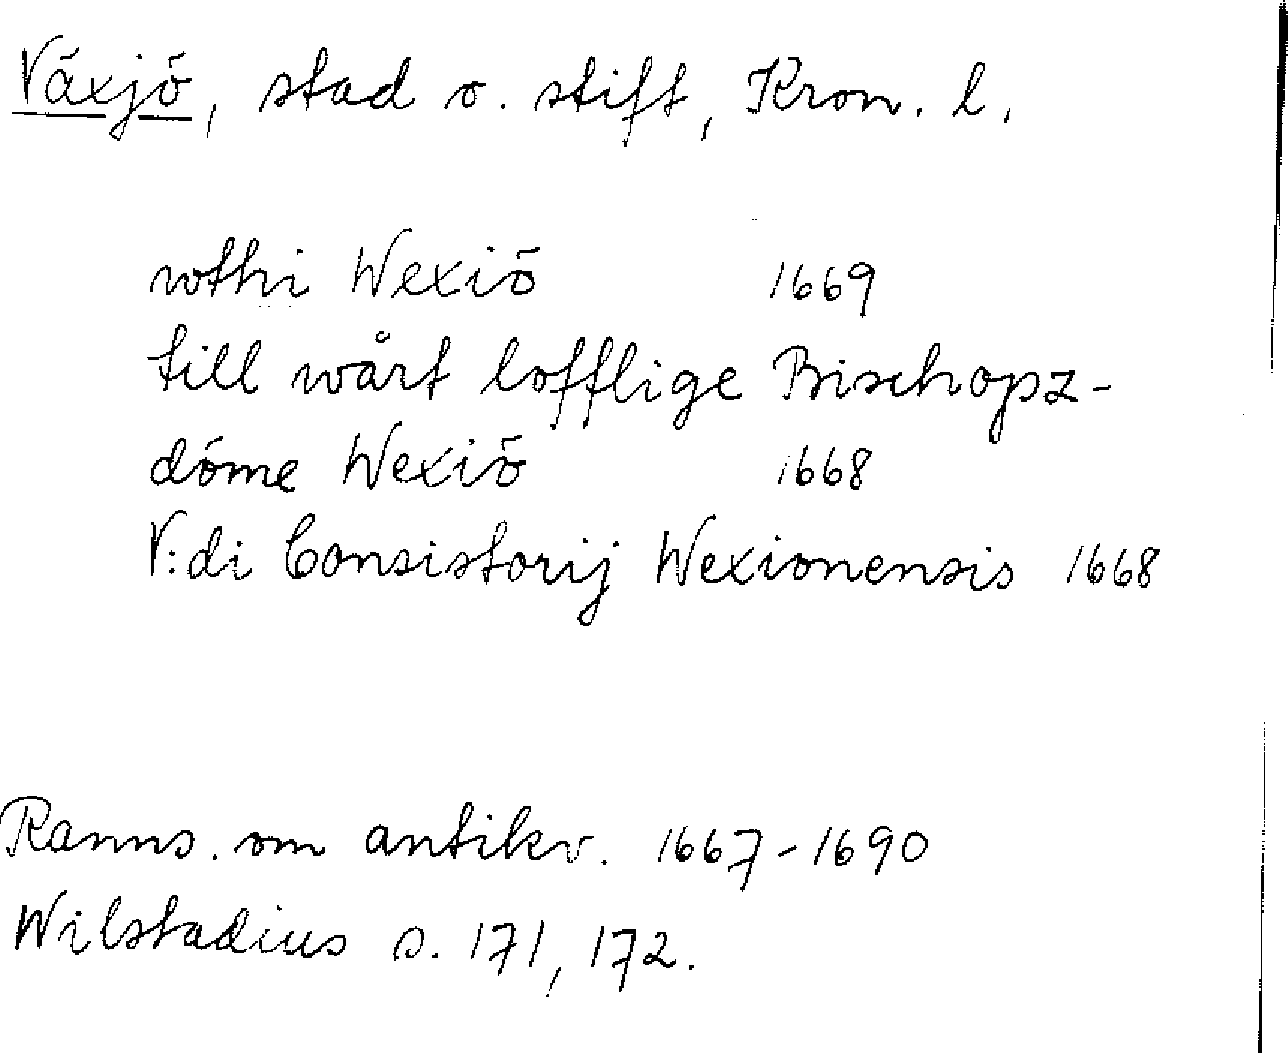 Växjö, stad o. stift, Kron. l.
uthi Wexiö 1669
till wårt lofflige Bischopz-
döme Wexiö 1668
V:di Consistorij Wexionensis 1668
Ranns. om antikv. 1667-1690
Wilstadius s. 171, 172.